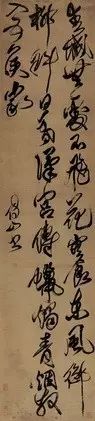 春城無處不飛花寒食東風御
柳斜日暮漢宮傳蠟燭青煙散
入五侯家 傅山書